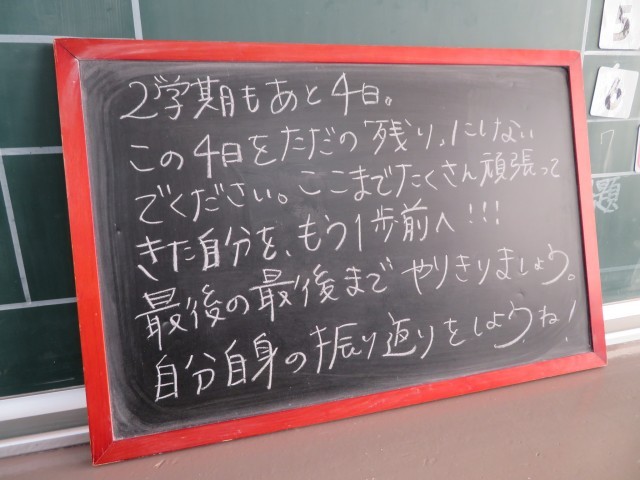 2学期もあと4日。
この4日をただの"残り"にしない
でください。ここまでたくさん頑張って
きた自分を、もう1歩前へ!!!
最後の最後までやりきりましょう。
自分自身の振り返りをしようね!
5
6
7
題